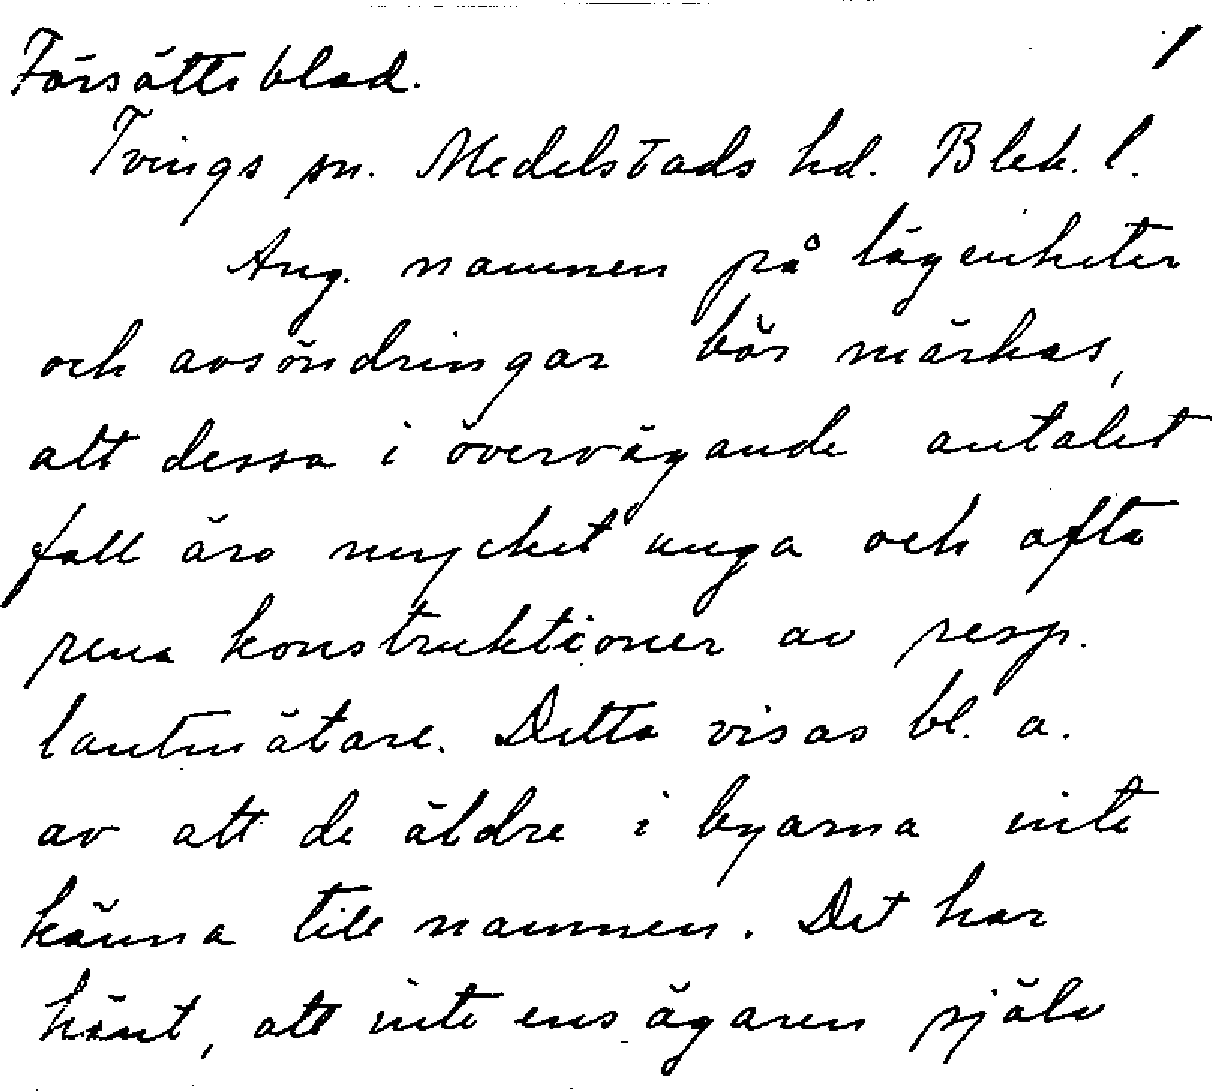 Försättsblad. 1
Tvings sn. Medelstads hd. Blek. l.
Ang. namnen på lägenheter
och avsöndringar bör märkas,
att dessa i övervägande antalet
fall äro mycket unga och ofta
rena konstruktioner av resp.
lantmätare. Detta visas bl. a.
av att de äldre i byarna inte
känna till namnen. Det har
hänt, att inte ens ägaren själv